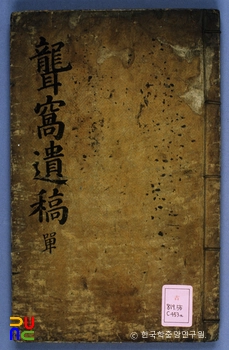 聾窩遺稿
單
한국학중앙연구원